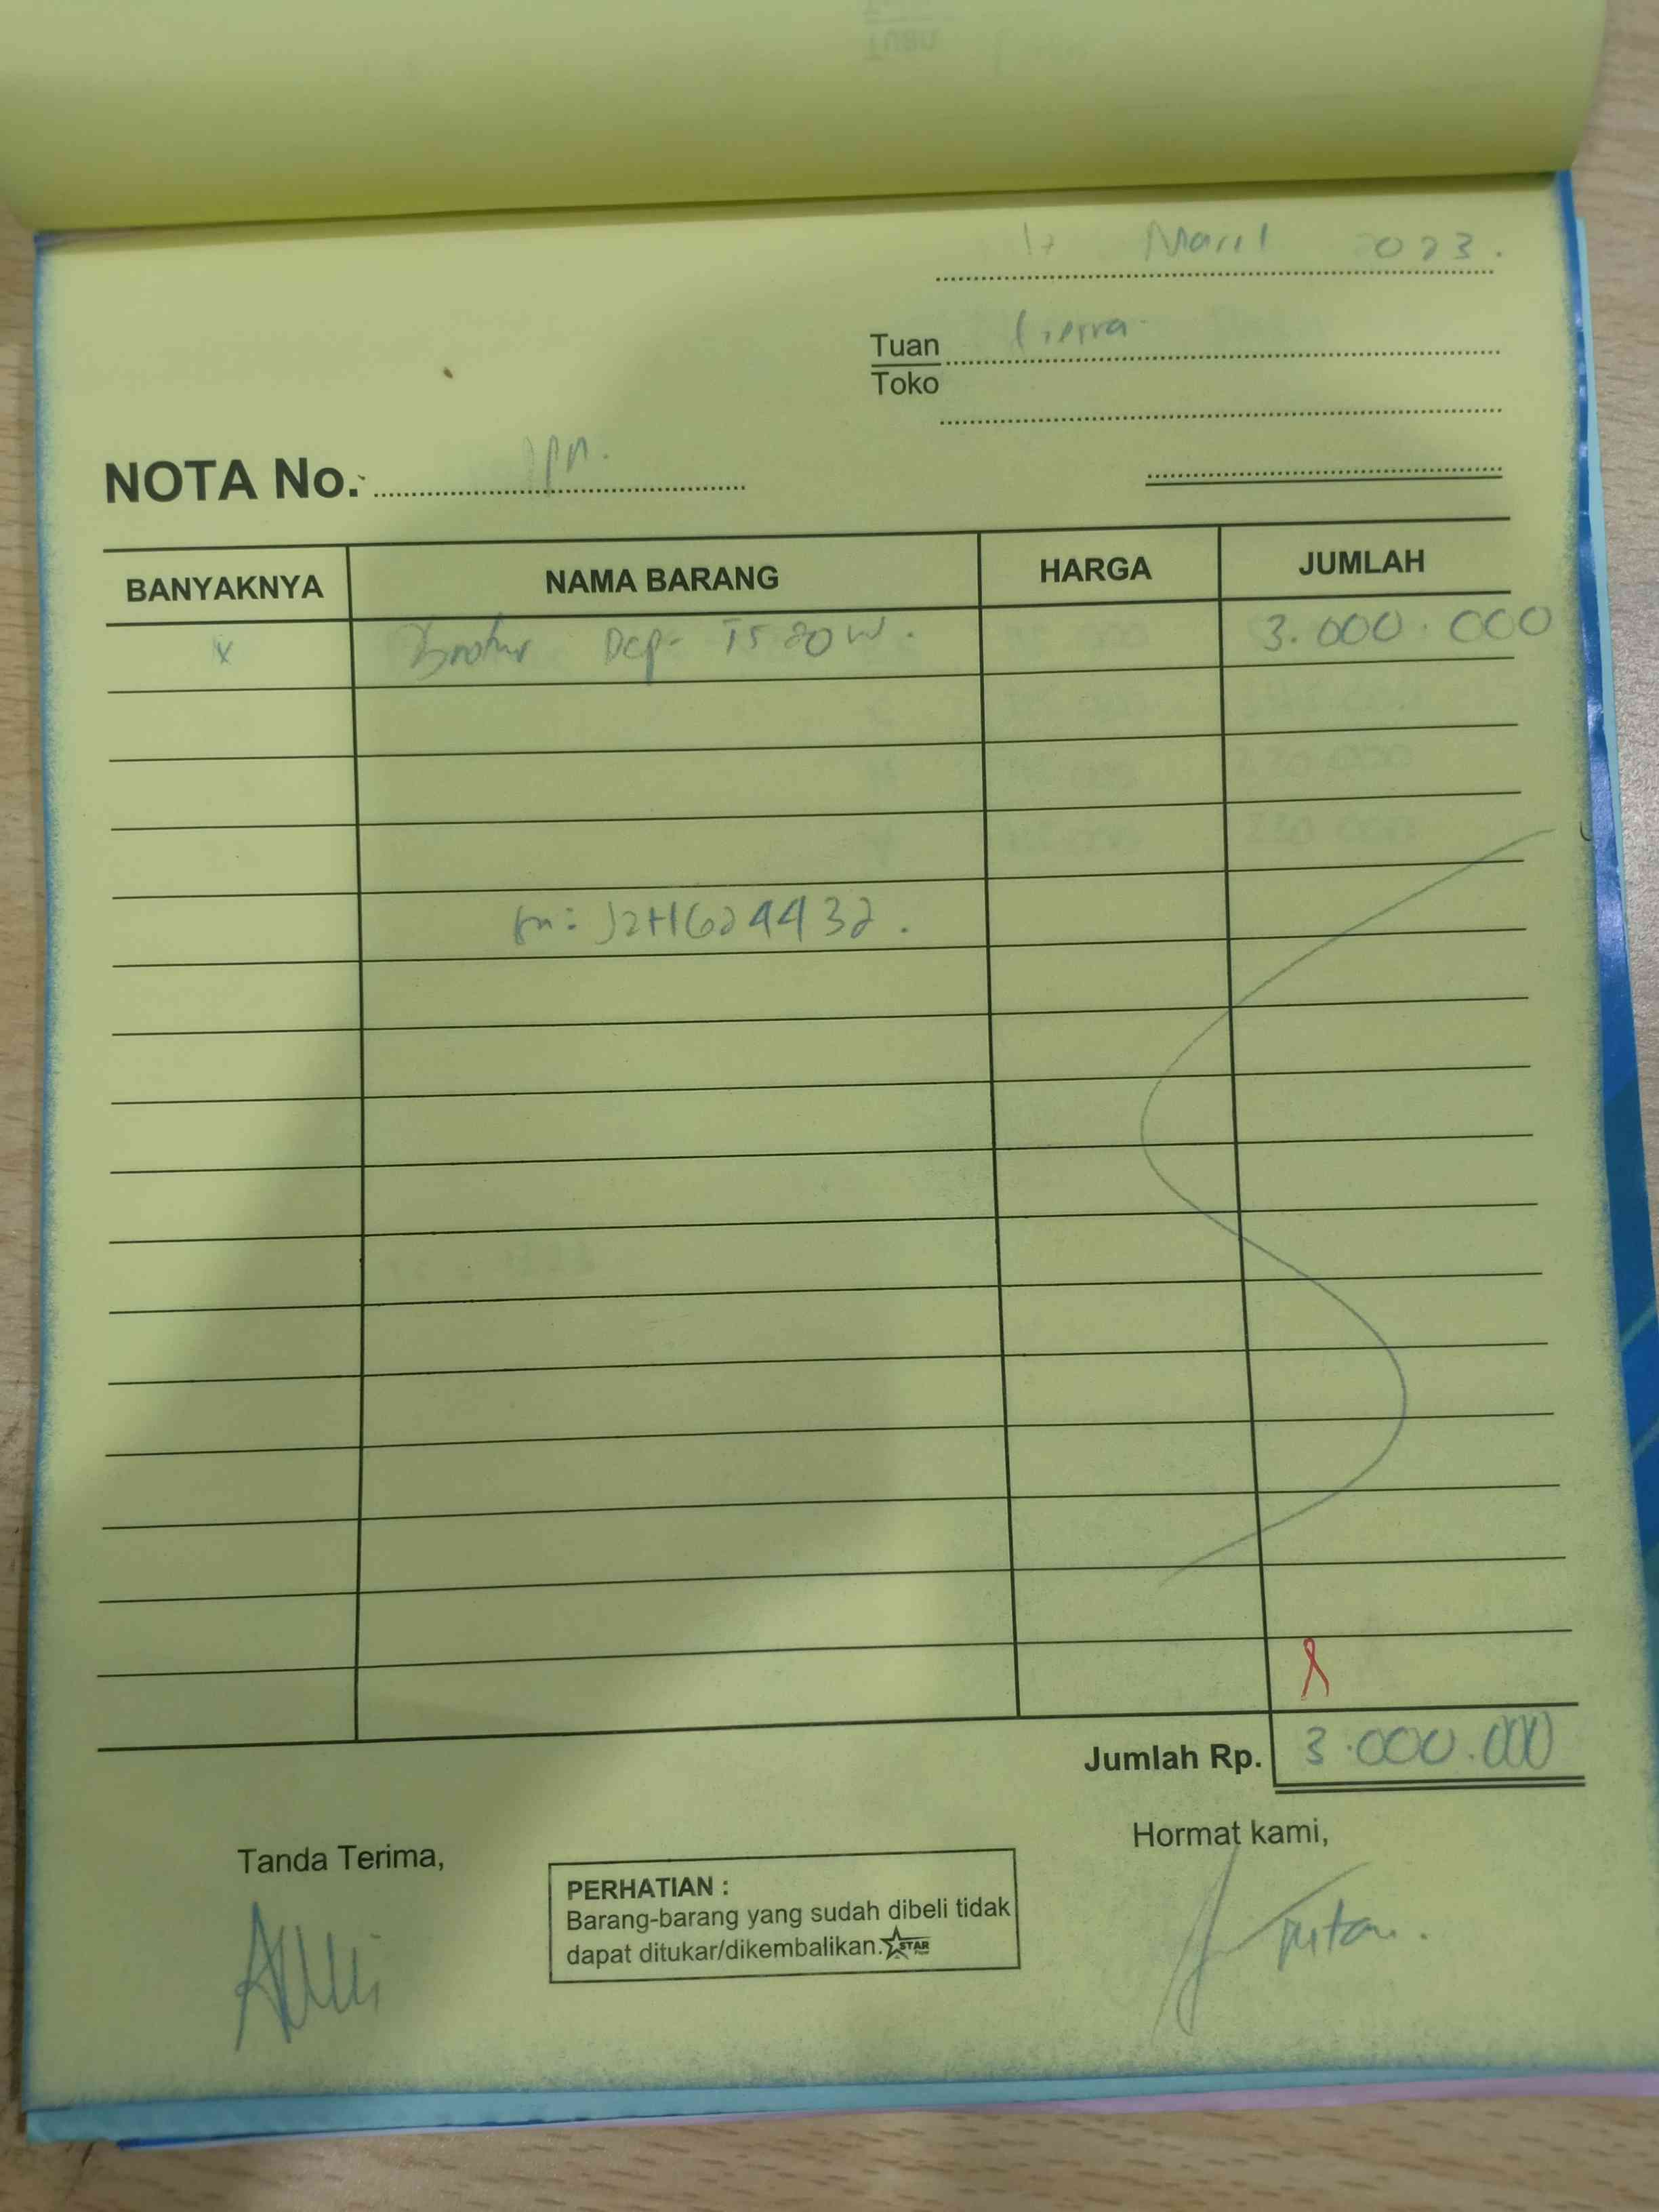 17 Maret 2023.
Tuan
Toko
NOTA No.
BANYAKNYA NAMA BARANG HARGA JUMLAH
Brother Dcp- T580W. 3.000.000
sn: J2H624432.
Jumlah Rp. 3.000.000
Tanda Terima,
Hormat kami,
PERHATIAN :
Barang-barang yang sudah dibeli tidak
dapat ditukar/dikembalikan. STAR